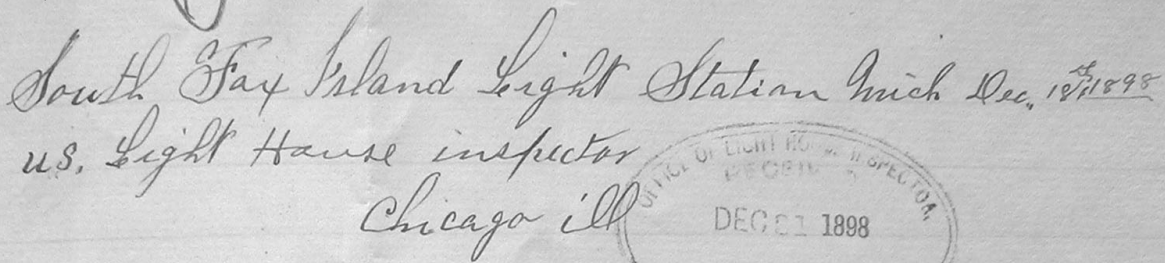 South Fox Island Light Station Mich Dec. 1898
U.S. Light House inspector
Chicago ill
OFFICE OF LIGHT HOUSE INSPECTOR,
RECEIVED
DEC 21 1898